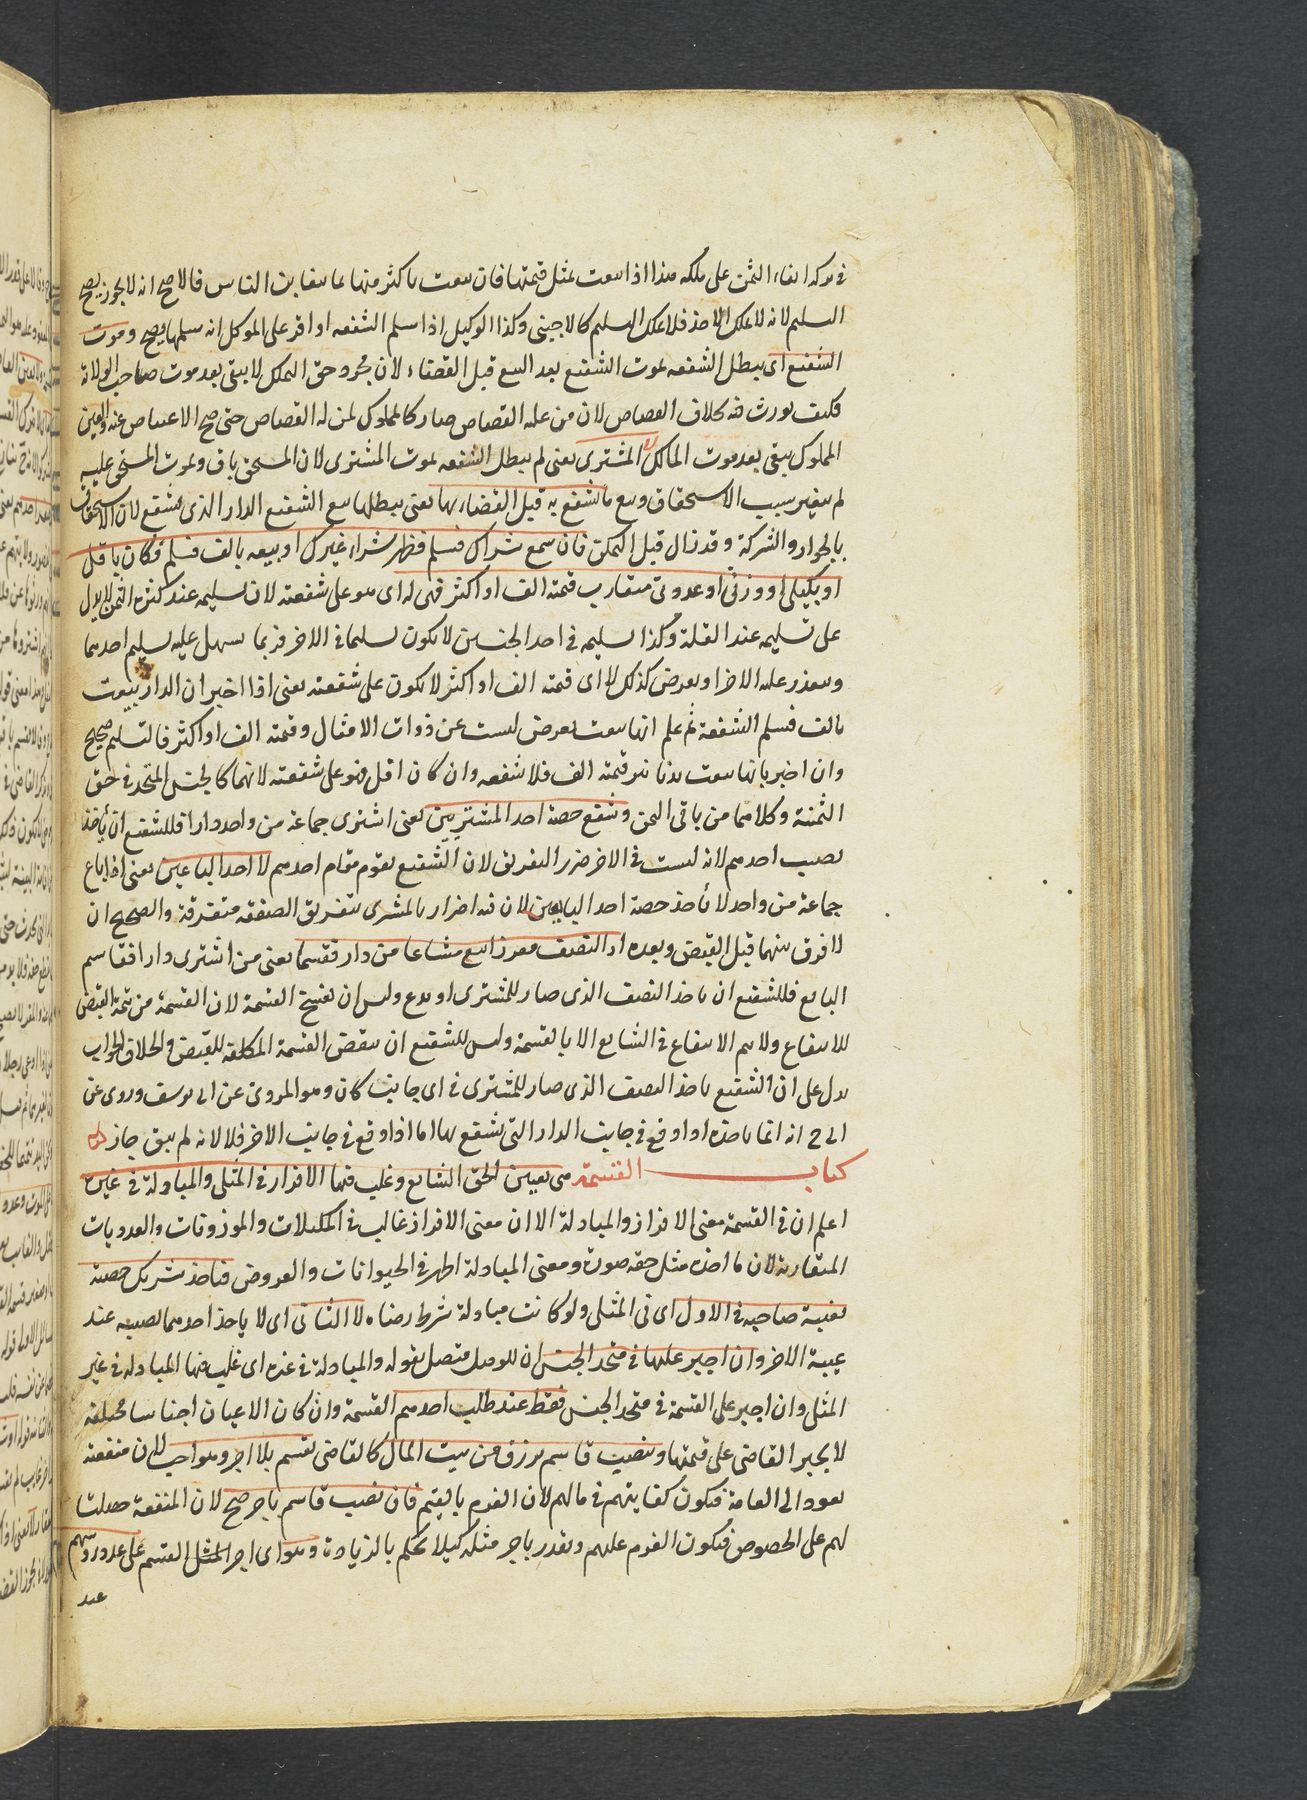 في تركه ابقاء الثمن على ملكه هذا اذا بيعت بمثل قيمتها فان بيعت باكثر منها بما يتغابن الناس فالاصح انه لا يجوز يصح
التسليم لانه لا يملك الاخذ فلا يملك التسليم كالاجنبي وكذا الوكيل اذا سلم الشفعة او اقر على الموكل انه سلمها يصح وموت
الشفيع اى يبطل الشفعة بموت الشفيع بعد البيع قبل القضاء لان مجرد حق التملك لا يبقى بعد موت صاحب الولاية
فكيف يورث عنه بخلاف القصاص لان من عليه القصاص صار كالمملوك لمن له القصاص حتى صح الاعتياض عنه والعين
المملوك يبقى بعد موت المالك لا المشترى يعنى لم يبطل الشفعة بموت المشترى لان المستحق باق وبموت المستحق عليه
لم يتغير سبب الاستحقاق وبيع ما يشفع به قبل القضاء بها يعنى يبطلها بيع الشفيع الدار الذى يشفع لان الاستحقاق
بالجوار والشركة وقد زال قبل التملك فان سمع شراك فسلم فظهر شراء غيرك او بيعه بالف فسلم فكان باقل
او بكيلى او وزنى او عددى متقارب قيمته الف او اكثر فهى له اى هو على شفعته لان تسليمه عند كثرة الثمن لا يدل
على تسليمه عند القلة وكذا تسليمه في احد الجنسين لا يكون تسليما في الاخر فربما يسهل عليه تسليم احدهما
ويتعذر عليه الاخر او بعرض كذلك لا اى قيمته الف او اكثر لا يكون على شفعته يعنى اذا اخبر ان الدار بيعت
بالف فسلم الشفعة ثم علم انها بيعت بعرض ليست عن ذوات الامثال وقيمته الف او اكثر فالتسليم صحيح
وان اخبر بانها بيعت بدنانير قيمته الف فلا شفعة وان كان اقل فهو على شفعته لانهما كالجنس المتحد في حق
الثمنية وكلاهما من باقى الثمن وشفع حصة احد المشتريين يعنى اشترى جماعة من واحد دارا فللشفيع ان يأخذ
نصيب احدهم لانه ليست في الاخر ضرر التفريق لان الشفيع يقوم مقام احدهم لا احد البايعين يعنى اذا باع
جماعة من واحد لا يأخذ حصة احد البايعين لان فيه اضرار بالمشترى بتفريق الصفقة متفرقة والصحيح ان
لا فرق بينهما قبل القبض وبعده او النصف مفرزا بيع مشاعا من دار فقسما يعنى من اشترى دارا فقاسم
البايع فللشفيع ان ياخذ النصف الذى صار للمشترى او يدع وليس ان يفسخ القسمة لان القسمة من تتمة القبض
للانتفاع ولا يتم الانتفاع في الشايع الا بالقسمة وليس للشفيع ان ينقض القسمة المكلفة للقبض والاطلاق الجواب
يدل على ان الشفيع ياخذ النصف الذى صار للمشترى في اى جانب كان وهو المروى عن ابى يوسف وروى عن
ابى ح انه انما ياخذه اذا وقع في جانب الدار التى تشفع بها اما اذا وقع في جانب الاخر فلا لانه لم يبق جارا
كتاب القسمة هى تعيين الحق الشايع وغلب فيها الافراز في المثلى والمبادلة في غيره
اعلم ان في القسمة معنى الافراز والمبادلة الا ان معنى الافراز غالب في المكيلات والموزونات والعدديات
المتقاربة لان ما اخذه مثل حقه صورة ومعنى المبادلة اظهر في الحيوانات والعروض فياخذ شريك حصته
بغيبة صاحبه في الاول اى في المثلى ولو كانت مبادلة شرط رضاه لا الثانى اى لا ياخذ احدهما نصيبه عند
غيبة الاخر وان اجبر عليها في متحد الجنس ان للوصل متصل بقوله والمبادلة في غيره اى غلب فيها المبادلة في غير
المثلى وان اجبر على القسمة في متحد الجنس فقط عند طلب احدهم القسمة وان كان الاعيان اجناسا مختلفة
لا يجبر القاضى على قسمتها وينصب قاسم يرزق من بيت المال كالقاضى يقسم بلا اجر وهو احب لان منفعته
يعود الى العامة فيكون كفايتهم في مالهم لان الغرم بالغنم فان نصب قاسم باجر صح لان المنفعة حصلت
لهم على الخصوص فيكون الغرم عليهم ويقدر باجر مثله كيلا يحكم بالزيادة وهو اى اجر المثل القسم على عدد رؤسهم
عند